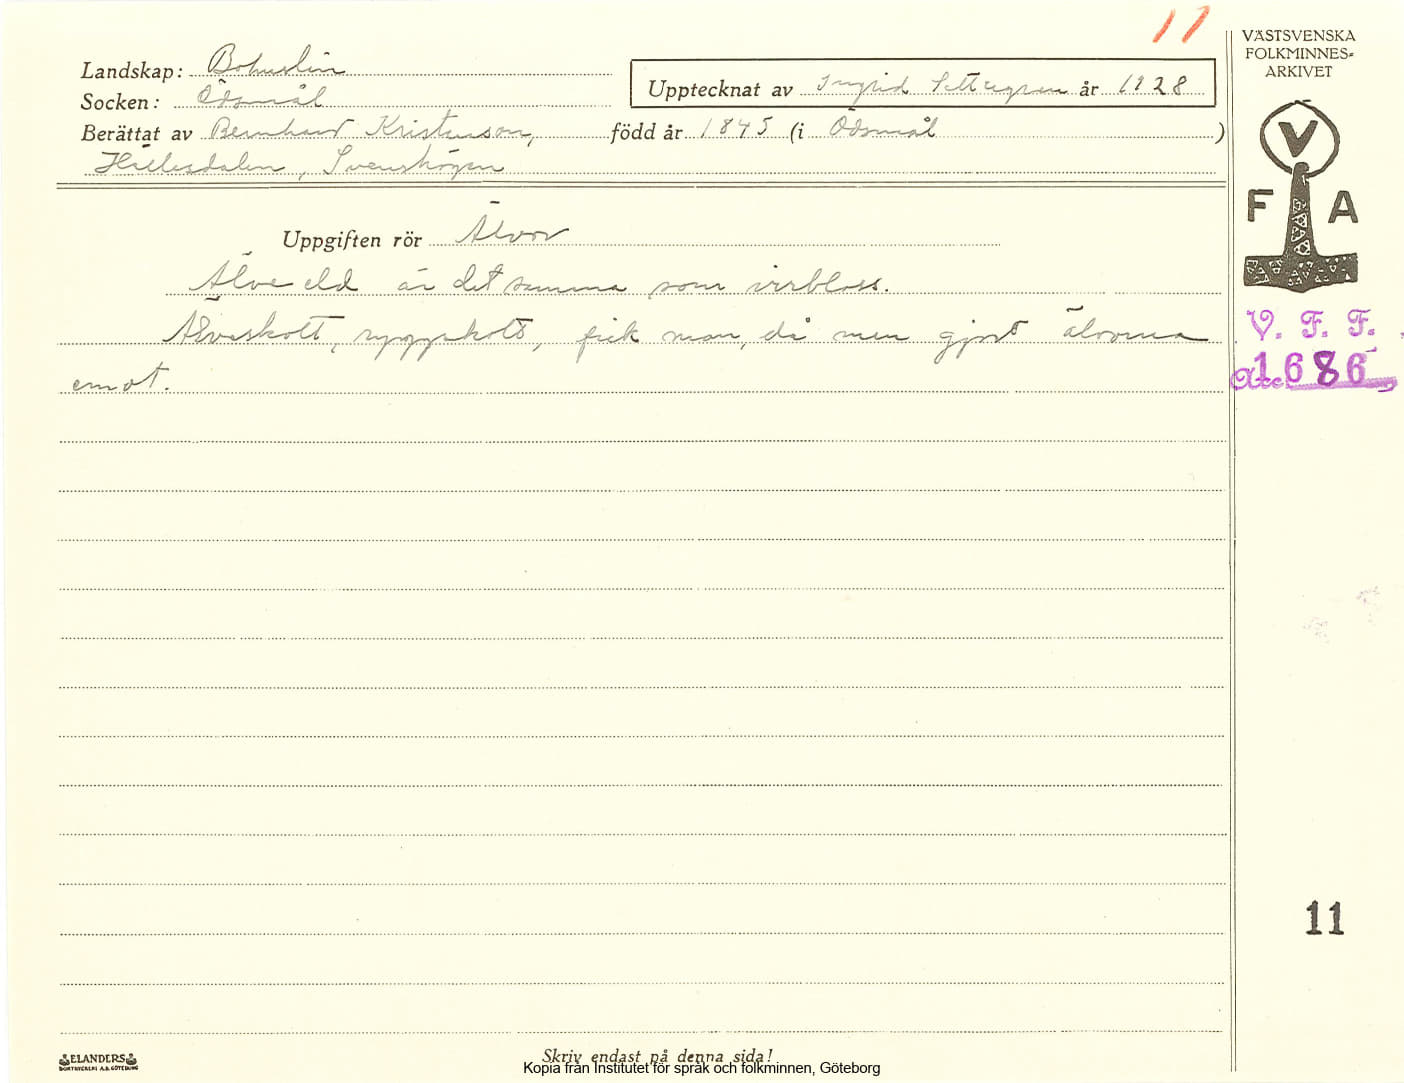 11
VÄSTSVENSKA
FOLKMINNES=
ARKIVET
Landskap: Bohuslän
Upptecknat av Ingrid Settergren år 1928
Socken: Ödsmål
Berättat av Bernhard Kristenson, född år 1845 (i Ödsmål)
Hällesdalen, Svenshögen
V
F A
Uppgiften rör Älvor
Älveeld är det samma som irrbloss.
Älvaskott, ryggskott, fick man, då men gjort älvorna
emot.
V. F. F.
Acc. 1686
11
ELANDERS
BOKTRYCKERI A.B. GÖTEBORG
Skriv endast på denna sida!
Kopia från Institutet för språk och folkminnen, Göteborg